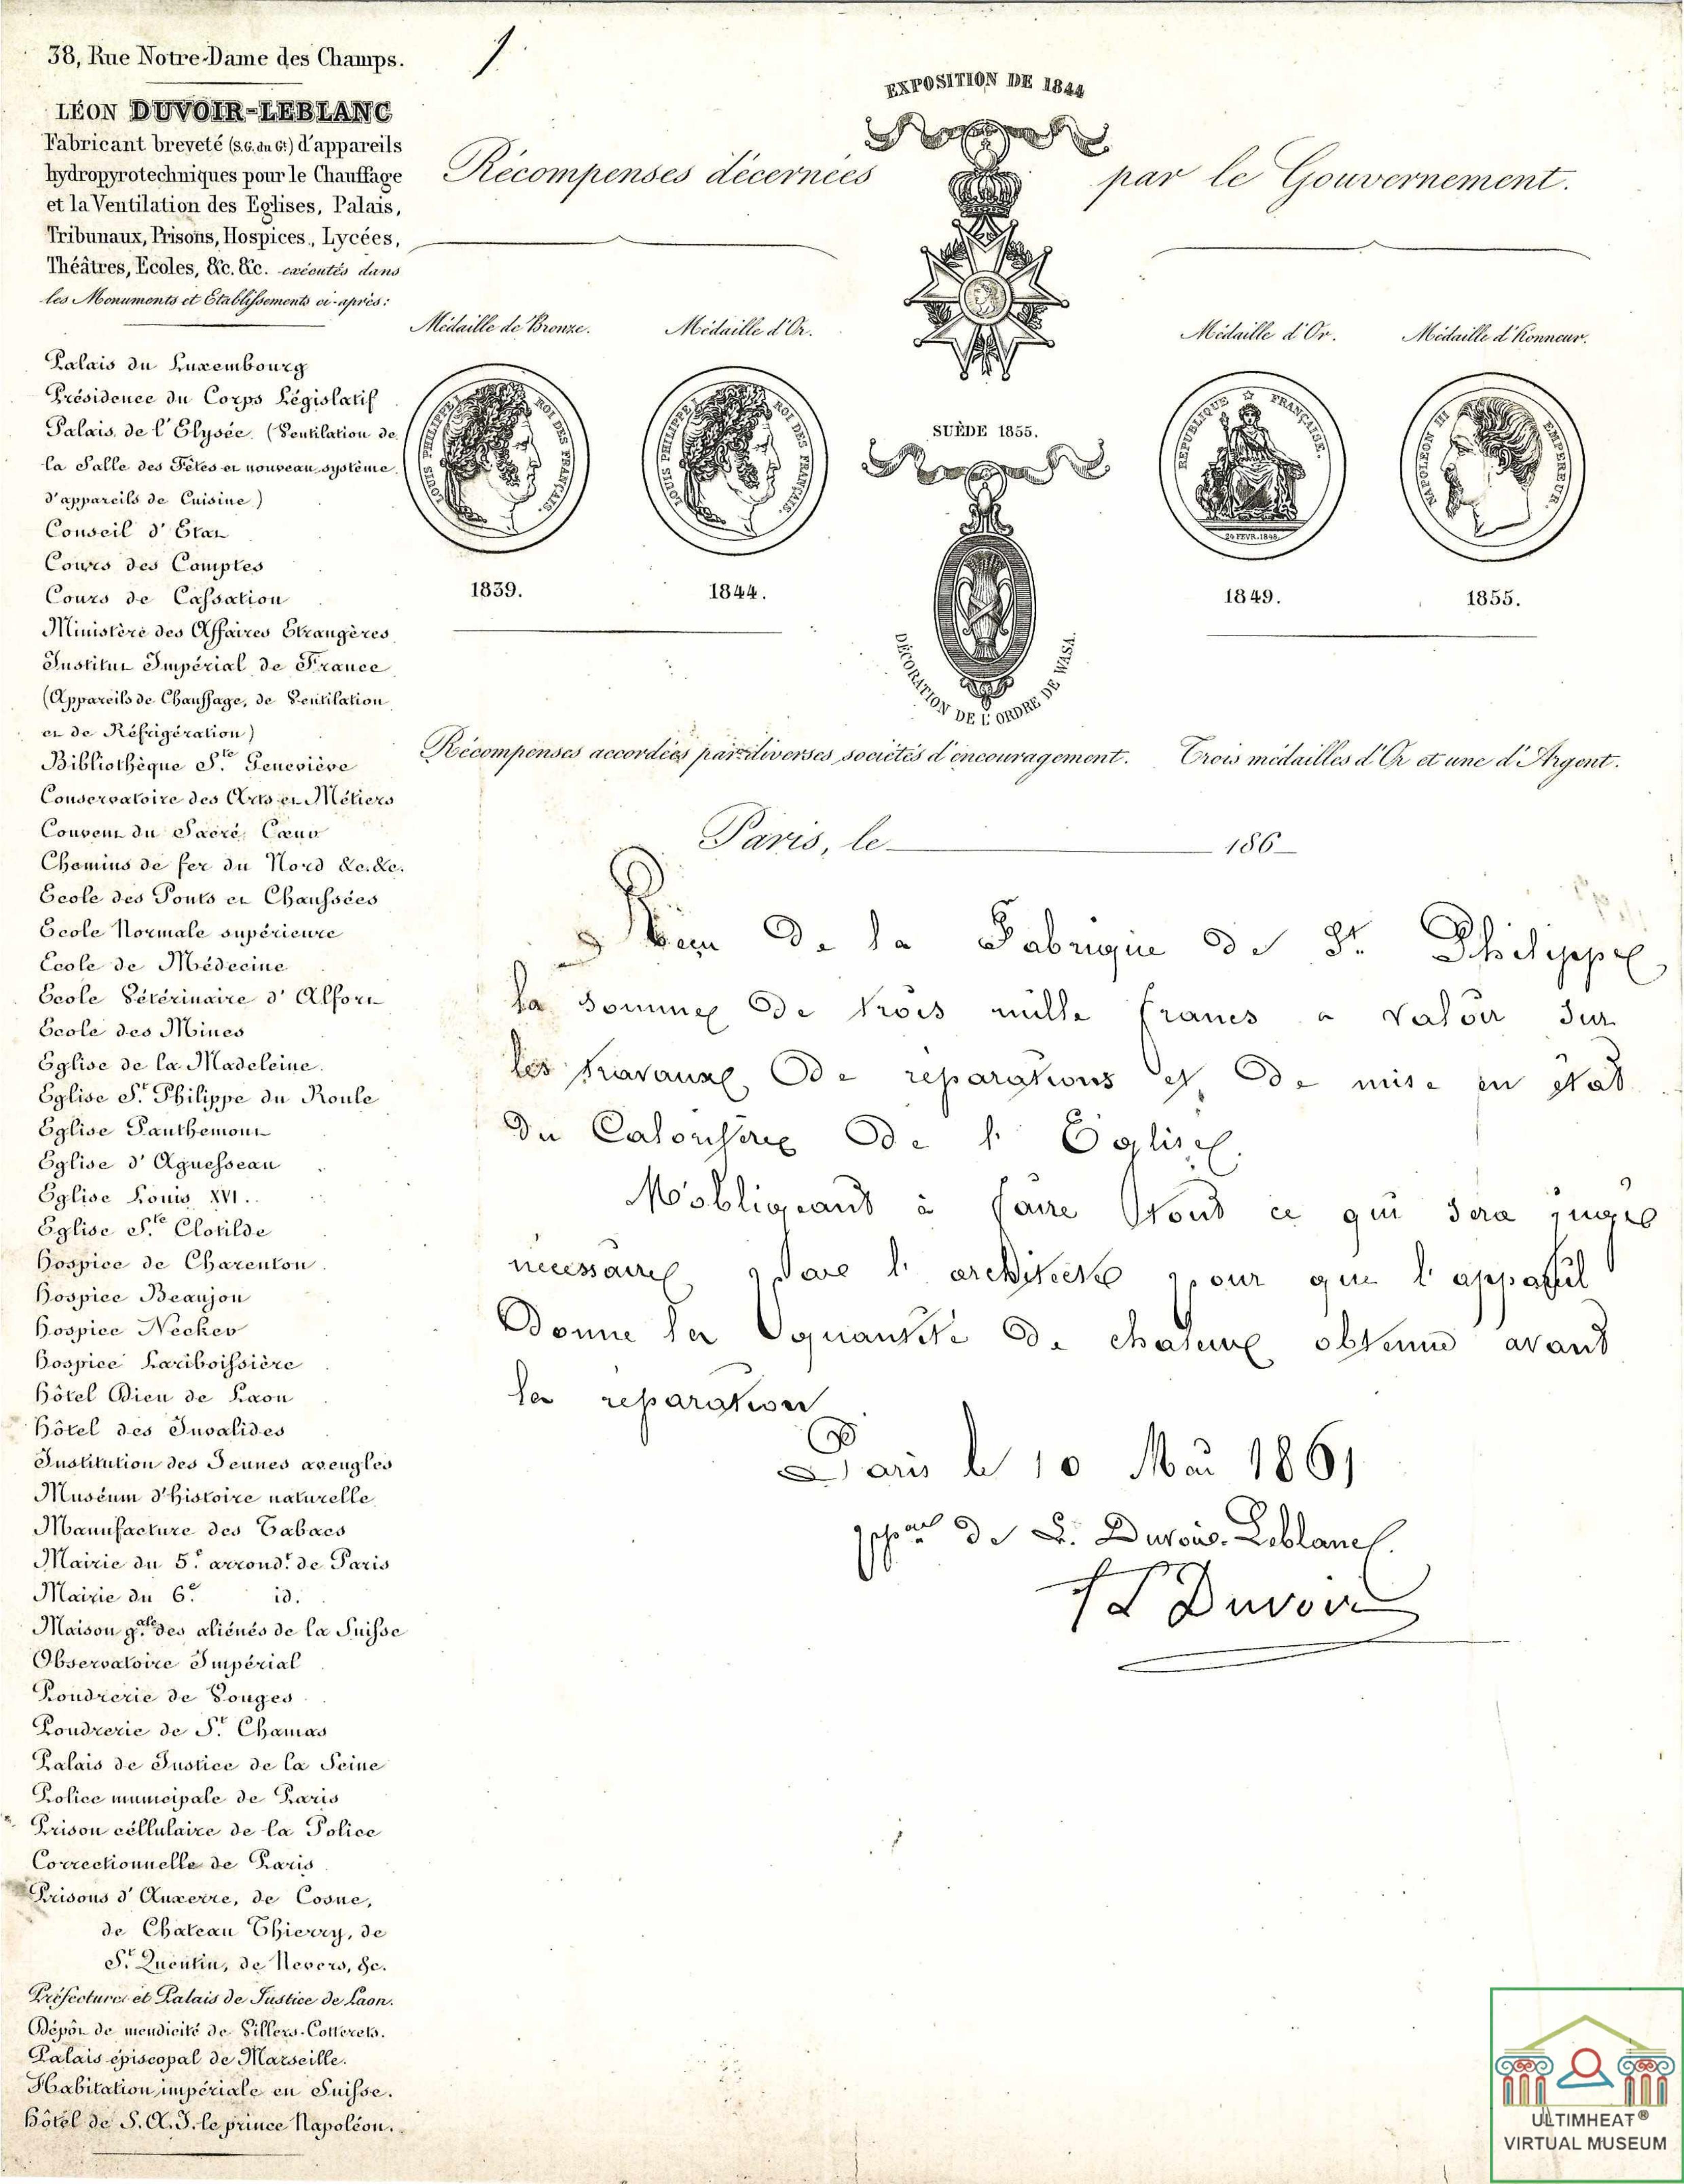 38, Rue Notre-Dame des Champs.
LÉON DUVOIR-LEBLANC
Fabricant breveté (S.G. du Gt) d'appareils
hydropyrotechniques pour le Chauffage
et la Ventilation des Eglises, Palais,
Tribunaux, Prisons, Hospices, Lycées,
Théâtres, Ecoles, &c. &c. exécutés dans
les Monuments et Etablissements ci-après:
Palais du Luxembourg
Présidence du Corps Législatif
Palais de l'Elysée (Ventilation de
la Salle des Fêtes et nouveau système
d'appareils de Cuisine)
Conseil d'Etat
Cours des Comptes
Cours de Cassation
Ministère des Affaires Etrangères
Institut Impérial de France
(Appareils de Chauffage, de Ventilation
et de Réfrigération)
Bibliothèque Ste Geneviève
Conservatoire des Arts et Métiers
Couvent du Sacré Cœur
Chemins de fer du Nord &c. &c.
Ecole des Ponts et Chaussées
Ecole Normale supérieure
Ecole de Médecine
Ecole Vétérinaire d'Alfort
Ecole des Mines
Eglise de la Madeleine.
Eglise St Philippe du Roule
Eglise Panthemont
Eglise d'Aguesseau
Eglise Louis XVI.
Eglise Ste Clotilde
Hospice de Charenton
Hospice Beaujon
Hospice Necker
Hospice Lariboissière
Hôtel Dieu de Laon
Hôtel des Invalides
Institution des Jeunes aveugles
Muséum d'histoire naturelle
Manufacture des Tabacs
Mairie du 5e arrondt de Paris
Mairie du 6e id.
Maison gale des aliénés de la Suisse
Observatoire Impérial
Poudrerie de Vonges
Poudrerie de St Chamas
Palais de Justice de la Seine
Police municipale de Paris
Prison céllulaire de la Police
Correctionnelle de Paris
Prisons d'Auxerre, de Cosne,
de Chateau Thierry, de
St Quentin, de Nevers, &c.
Préfecture et Palais de Justice de Laon.
Dépôt de mendicité de Villers-Cotterets.
Palais épiscopal de Marseille.
Habitation impériale en Suisse.
Hôtel de S.A.I. le prince Napoléon.
1
EXPOSITION DE 1844
Récompenses décernées par le Gouvernement.
Médaille de Bronze. Médaille d'Or. Médaille d'Or. Médaille d'honneur.
LOUIS PHILIPPE I ROI DES FRANÇAIS.
LOUIS PHILIPPE I ROI DES FRANÇAIS.
REPUBLIQUE FRANÇAISE.
24 FEVR. 1848.
NAPOLEON III EMPEREUR.
SUÈDE 1855.
1839. 1844. 1849. 1855.
DÉCORATION DE L'ORDRE DE WASA.
Récompenses accordées par diverses sociétés d'encouragement. Trois médailles d'Or et une d'Argent.
Paris, le 186
Reçu de la Fabrique de St Philippe
la somme de trois mille francs a valoir sur
les travaux de réparations et de mise en état
du Calorifère de l'Eglise.
M'obligeant à faire tout ce qui sera jugé
nécessaire par l'architecte pour que l'appareil
donne la quantité de chaleur obtenue avant
la réparation
Paris le 10 Mai 1861
de L. Duvoir-Leblanc.
Duvoir
ULTIMHEAT®
VIRTUAL MUSEUM